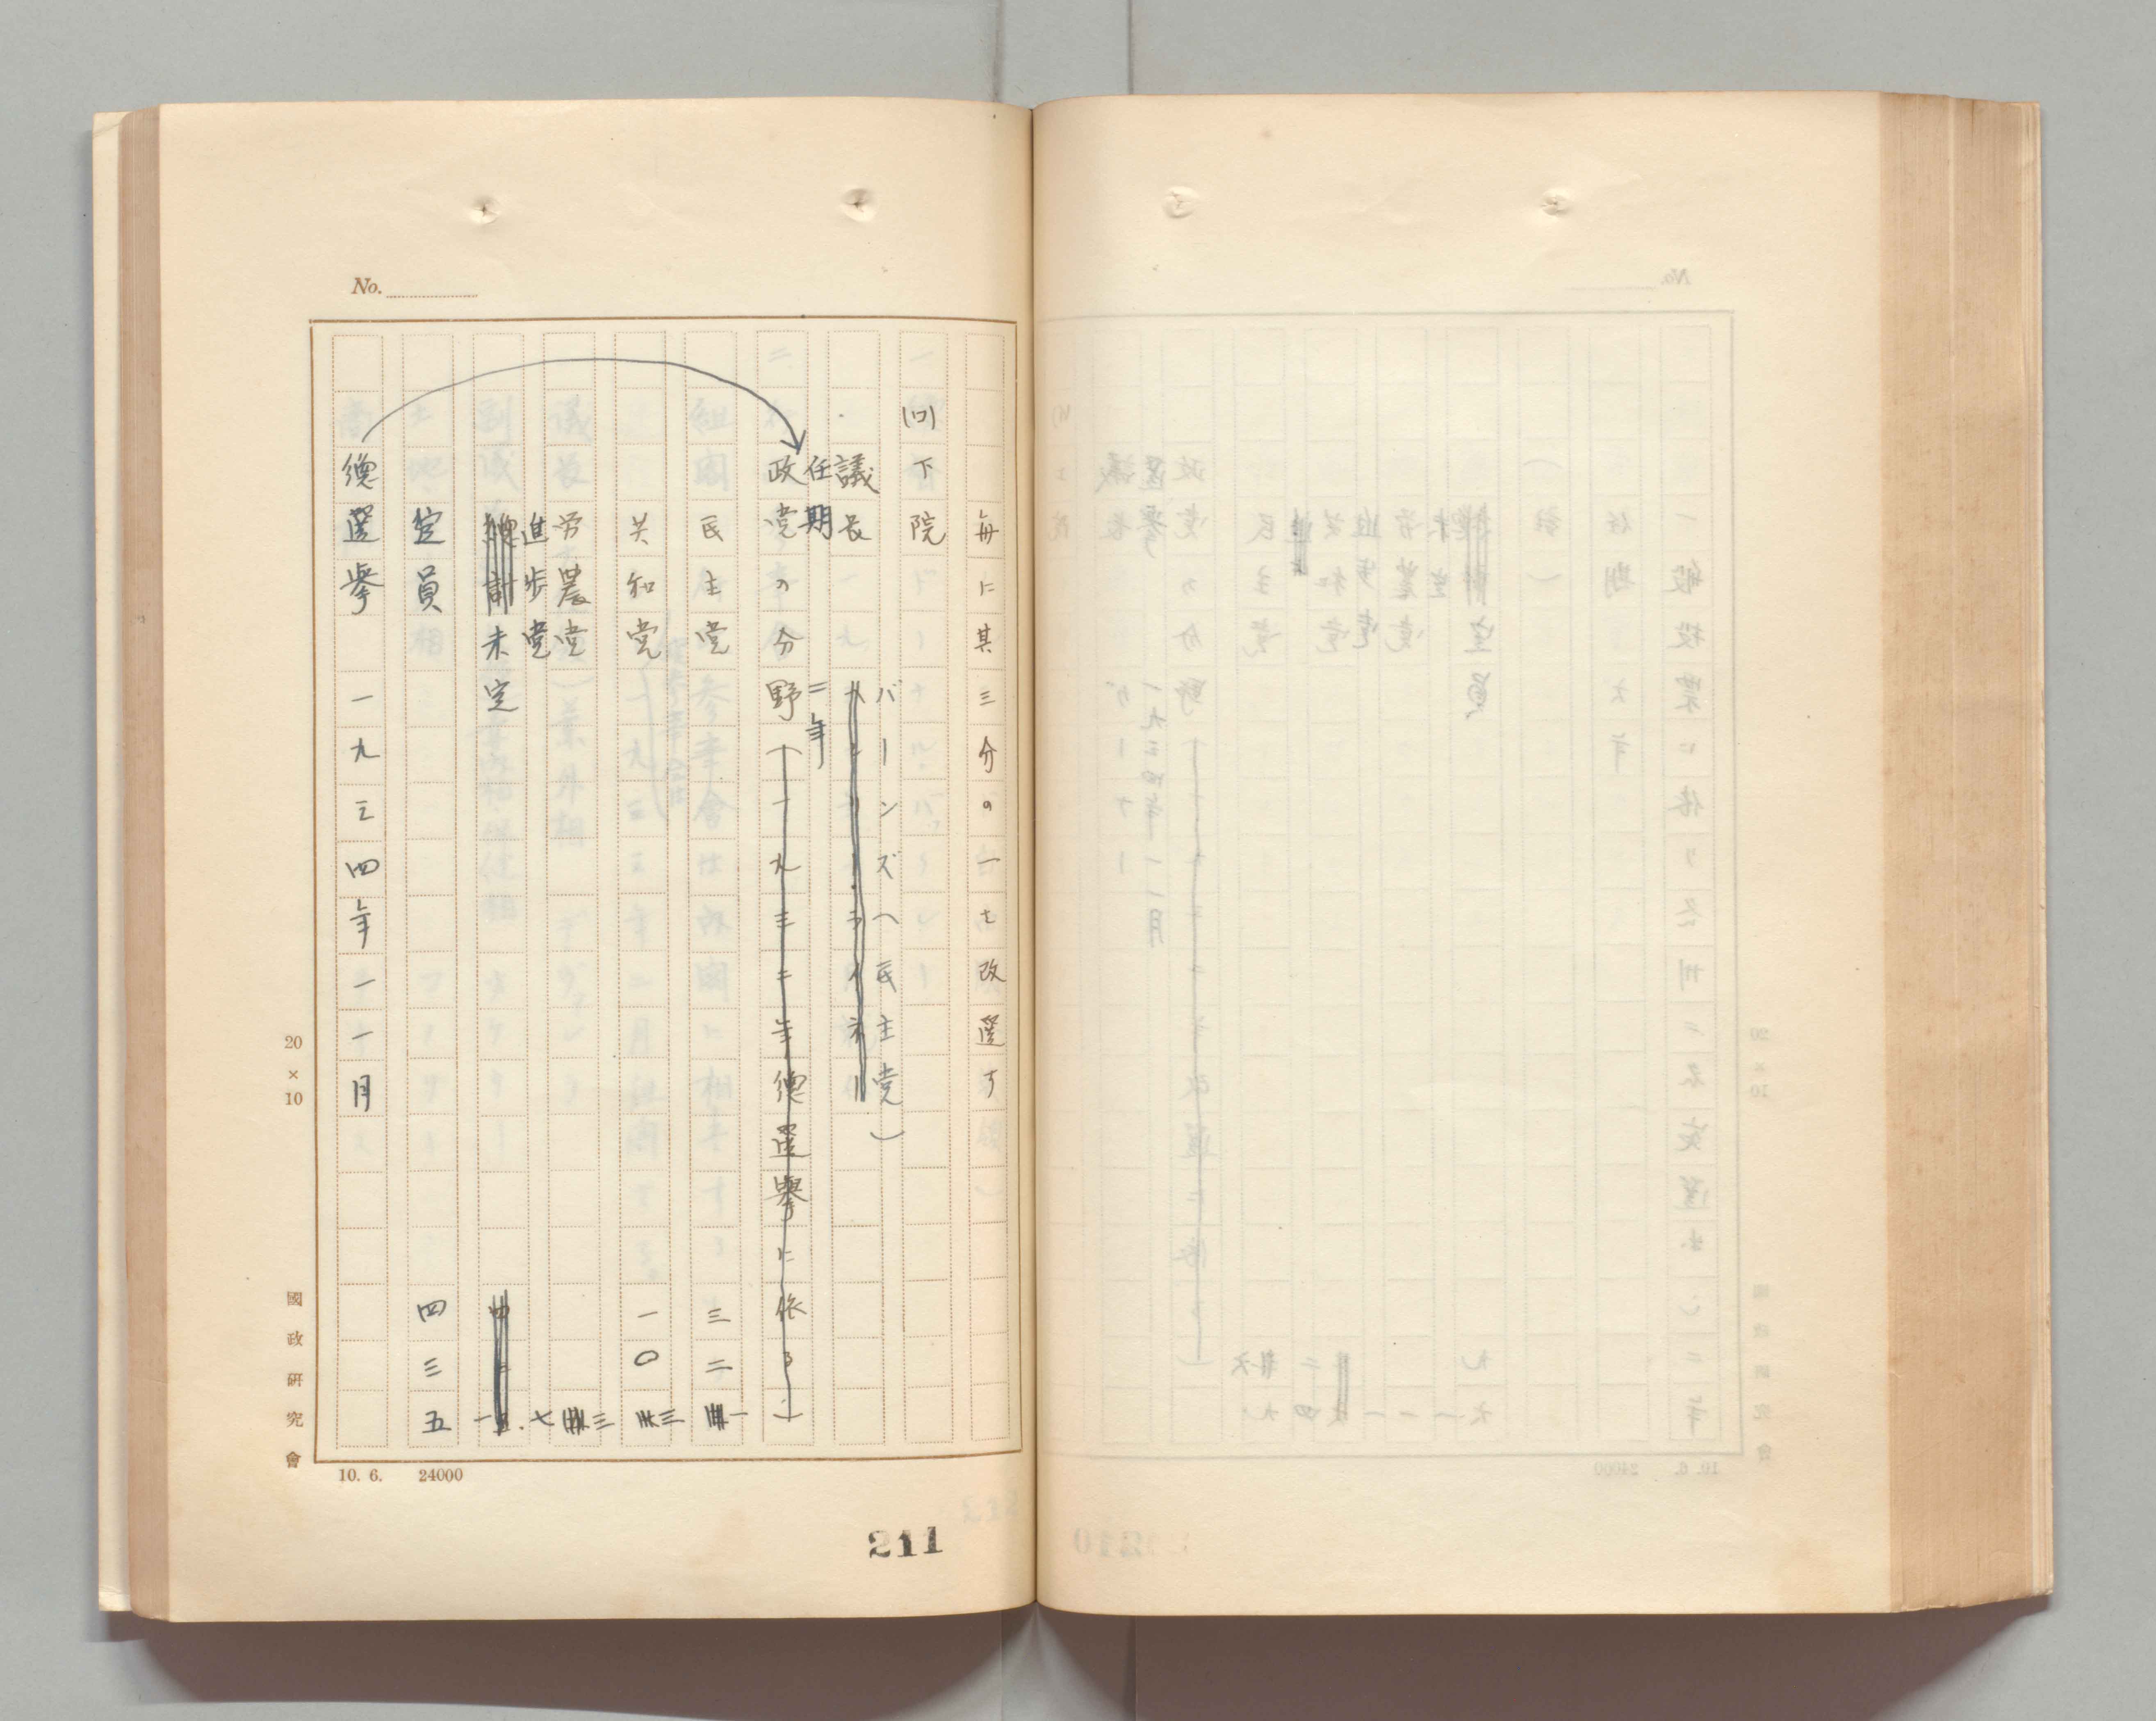 No.
毎に其三分の一を改選す
(ロ)下院
議長 バーンズ(民主党)
任期 二年
政党の分野(一九三二年總選擧に依る)
民主党 三二一
共和党 一〇三
労農党 三
進歩党 七
總計未定 一
定員 四三五
總選挙 一九三四年一一月
20×10
國政研究會
10. 6. 24000
211